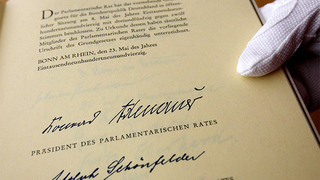 Das Parlamentarische Rat hat das vorstehende Grund-
gesetz für die Bundesrepublik Deutschland in öffent-
licher Sitzung am 8. Mai des Jahres Eintausendneun-
hundertneunundvierzig mit dreiundfünfzig gegen zwölf
Stimmen beschlossen. Zu Urkunde dessen haben sämtliche
Mitglieder des Parlamentarischen Rates die vorliegende
Urschrift des Grundgesetzes eigenhändig unterzeichnet.
BONN AM RHEIN, den 23. Mai des Jahres
Eintausendneunhundertneunundvierzig.
Konrad Adenauer
PRÄSIDENT DES PARLAMENTARISCHEN RATES
Adolph Schönfelder